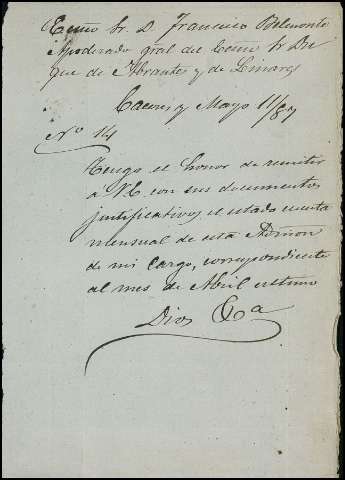 Excmo Sr. D. Francisco Belmonte
Apoderado gral del Excmo Sr Du
que de Abrantes y de Linares
Caceres y Mayo 11/87
No 14
Tengo el honor de remitir
a V.E. con sus documentos
justificativos el estado cuenta
mensual de esta Admon
de mi cargo, correspondiente
al mes de Abril ultimo
Dios &a